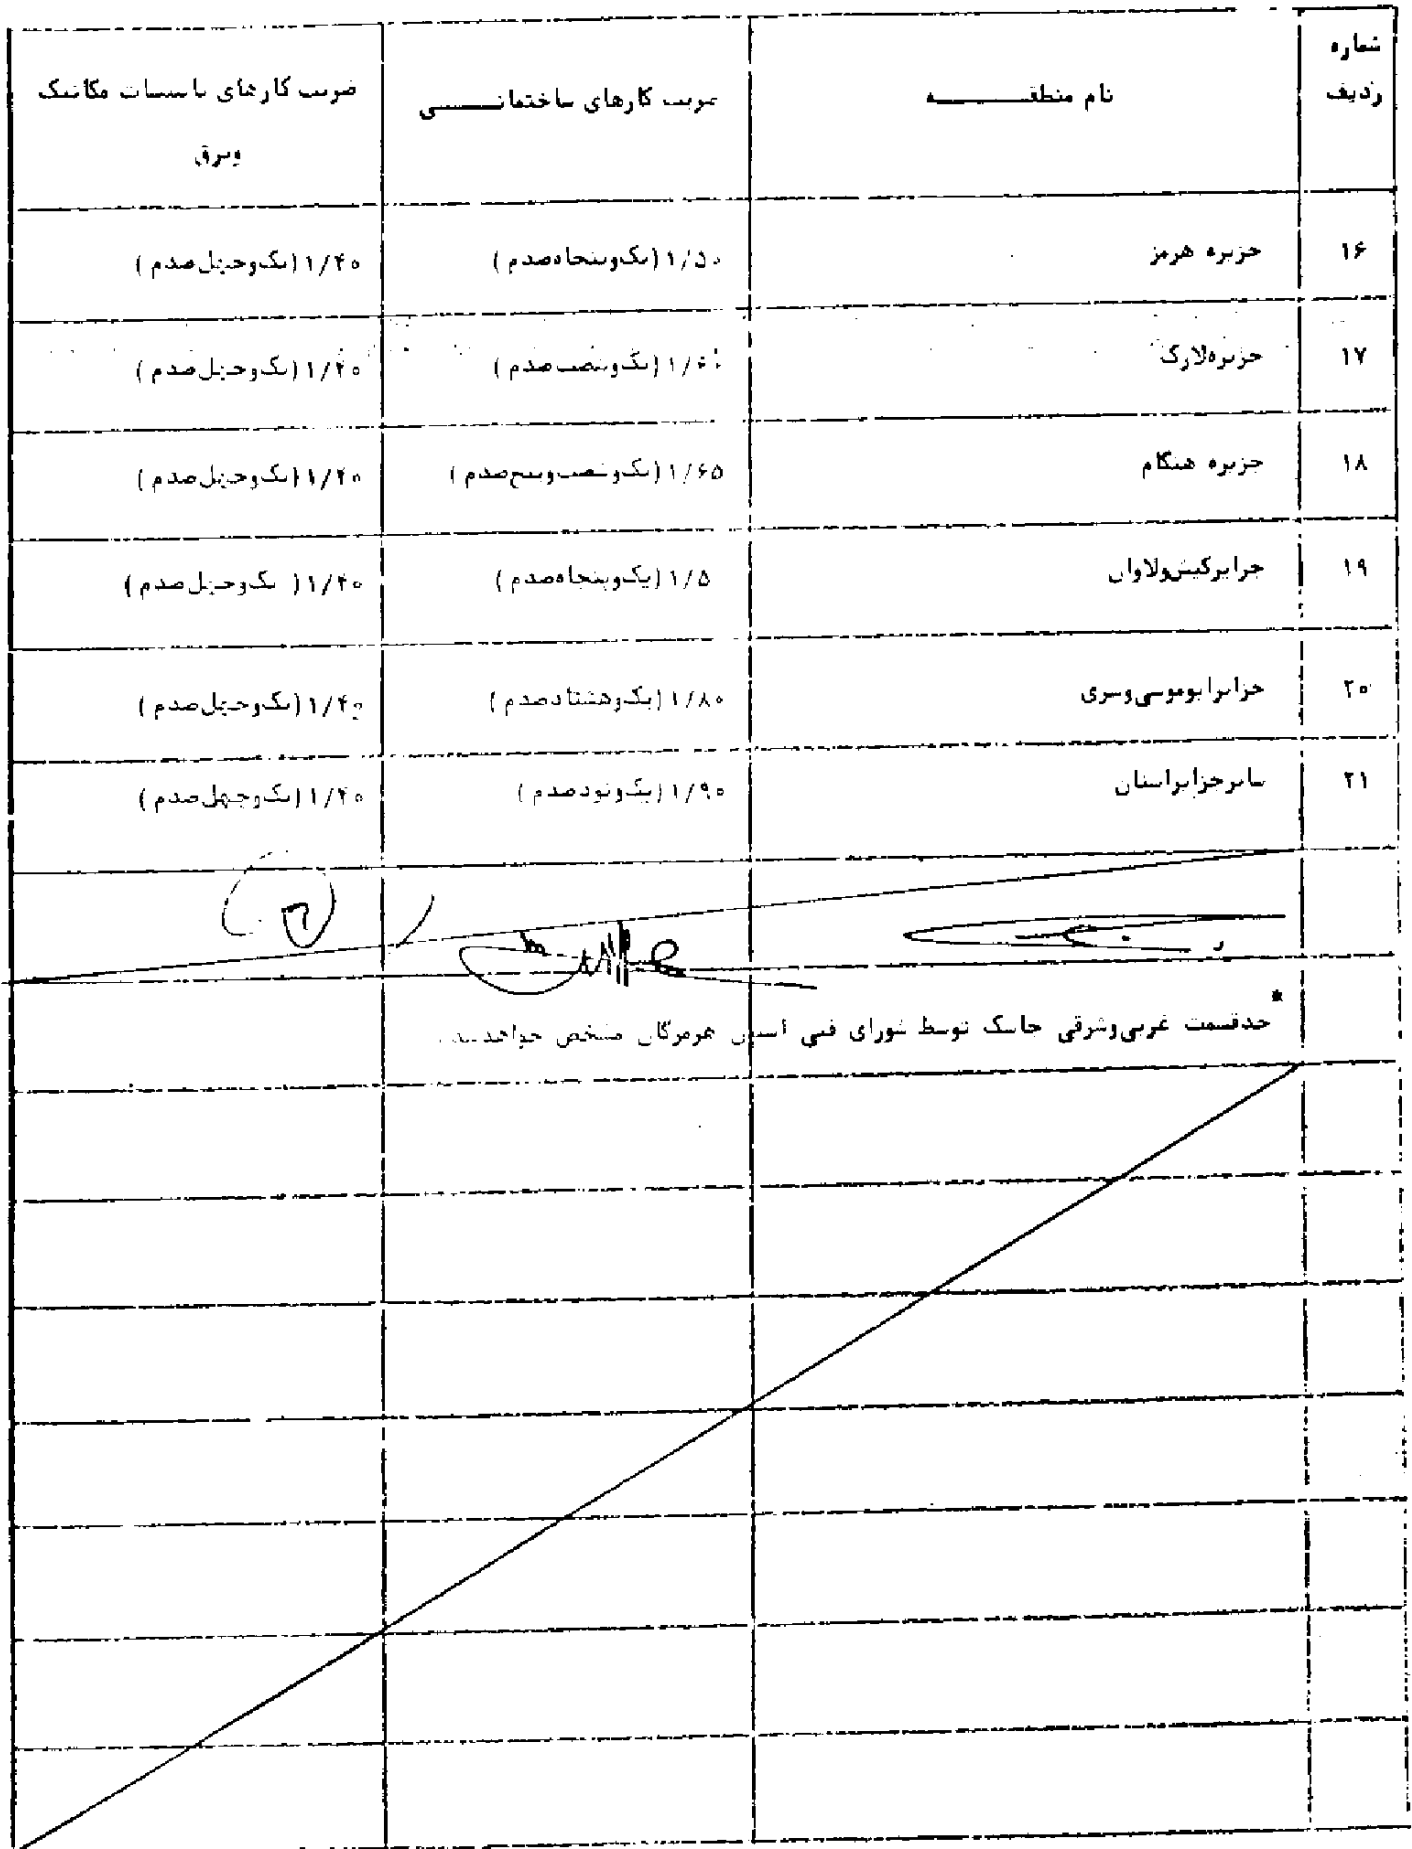 شماره ردیف | نام منطقه | ضریب کارهای ساختمانی | ضریب کارهای تاسیسات مکانیک وبرق
۱۶ | جزیره هرمز | ۱/۵۰ (یک‌وپنجاه‌صدم) | ۱/۴۰ (یک‌وچهل‌صدم)
۱۷ | جزیره‌لارک | ۱/۶۰ (یک‌وشصت‌صدم) | ۱/۴۰ (یک‌وچهل‌صدم)
۱۸ | جزیره هنگام | ۱/۶۵ (یک‌وشصت‌وپنج‌صدم) | ۱/۴۰ (یک‌وچهل‌صدم)
۱۹ | جزایرکیش‌ولاوان | ۱/۵ (یک‌وپنجاه‌صدم) | ۱/۴۰ (یک‌وچهل‌صدم)
۲۰ | جزایرابوموسی‌وسری | ۱/۸۰ (یک‌وهشتادصدم) | ۱/۴۰ (یک‌وچهل‌صدم)
۲۱ | سایرجزایراستان | ۱/۹۰ (یک‌ونودصدم) | ۱/۴۰ (یک‌وچهل‌صدم)
* حدقسمت غربی‌وشرقی جاسک توسط شورای فنی استان هرمزگان مشخص خواهدشد.